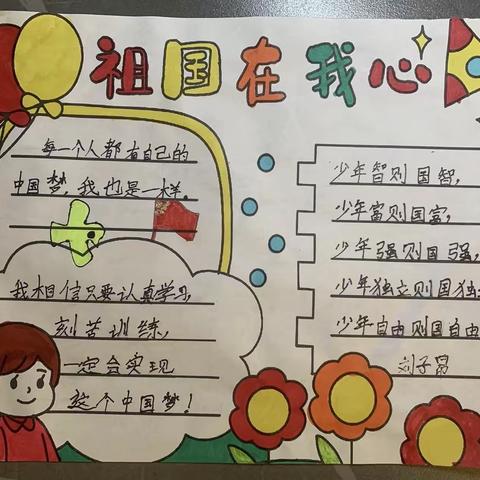 祖国在我心
每一个人都有自己的
中国梦,我也是一样。
我相信只要认真学习,
刻苦训练,
一定会实现
这个中国梦!
少年智则国智,
少年富则国富,
少年强则国强,
少年独立则国独
少年自由则国自由
刘子